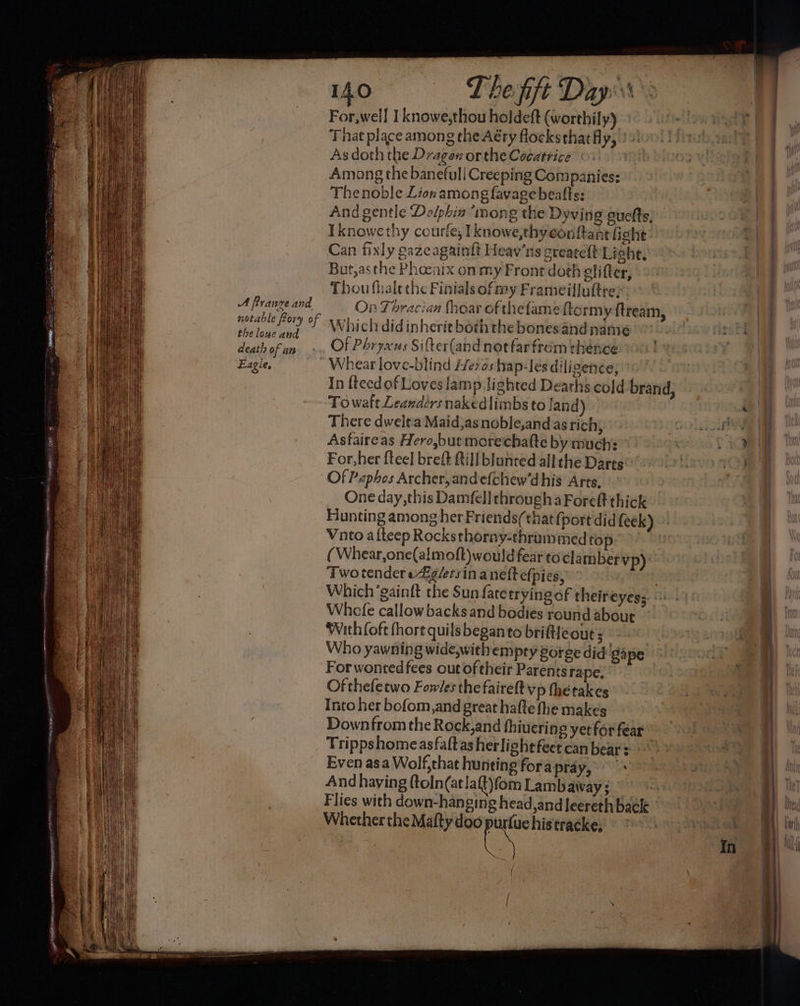 140 The fift Day
For,well I knowe,thou holdeſt (worthily)
That place among the Aëry flocks that fly,
As doth the Dragon or the Cocatrice
Among the banefull Creeping Companies:
The noble Lion among ſavage beaſts:
And gentle Dolphin 'mong the Dyving gueſts,
I knowe thy courſe, I knowe,thy conſtant ſight
Can fixly gaze againſt Heav'ns greateſt Light,
But,as the Phœnix on my Front doth gliſter,
Thou ſhalt the Finials of my Frame illuſtre.
A ſtrange and
notable ſtory of
the loue and
death of an
Eagle.
On Thracian ſhoar of the ſame ſtormy ſtream,
Which did inherit both the bones and name
Of Phryxus Siſter(and not far from thence
Whear love-blind Heros hap-les diligence,
In ſteed of Loves lamp lighted Deaths cold brand,
To waft Leanders naked limbs to land)
There dwelt a Maid,as noble,and as rich,
As faire as Hero,but more chaſte by much:
For,her ſteel breſt ſtill blunted all the Darts
Of Paphos Archer,and eſchew'd his Arts.
One day,this Damſell through a Foreſt thick
Hunting among her Friends(that ſport did ſeek)
Vnto a ſteep Rocks thorny-thrummed top
(Whear,one(almoſt)would fear to clamber vp)
Two tender Æglets in a neſt eſpies,
Which 'gainſt the Sun ſate trying of their eyes;
Whoſe callow backs and bodies round about
With ſoft ſhort quils began to briſtle out;
Who yawning wide,with empty gorge did gape
For wonted fees out of their Parents rape.
Of theſe two Fowles the faireſt vp ſhe takes
Into her boſom,and great haſte ſhe makes
Down from the Rock,and ſhiuering yet for fear
Tripps home as faſt as her light feet can bear:
Even as a Wolf,that hunting for a pray,
And having ſtoln(at laſt)ſom Lamb away;
Flies with down-hanging head,and leereth back
Whether the Maſty doo purſue his tracke.
In